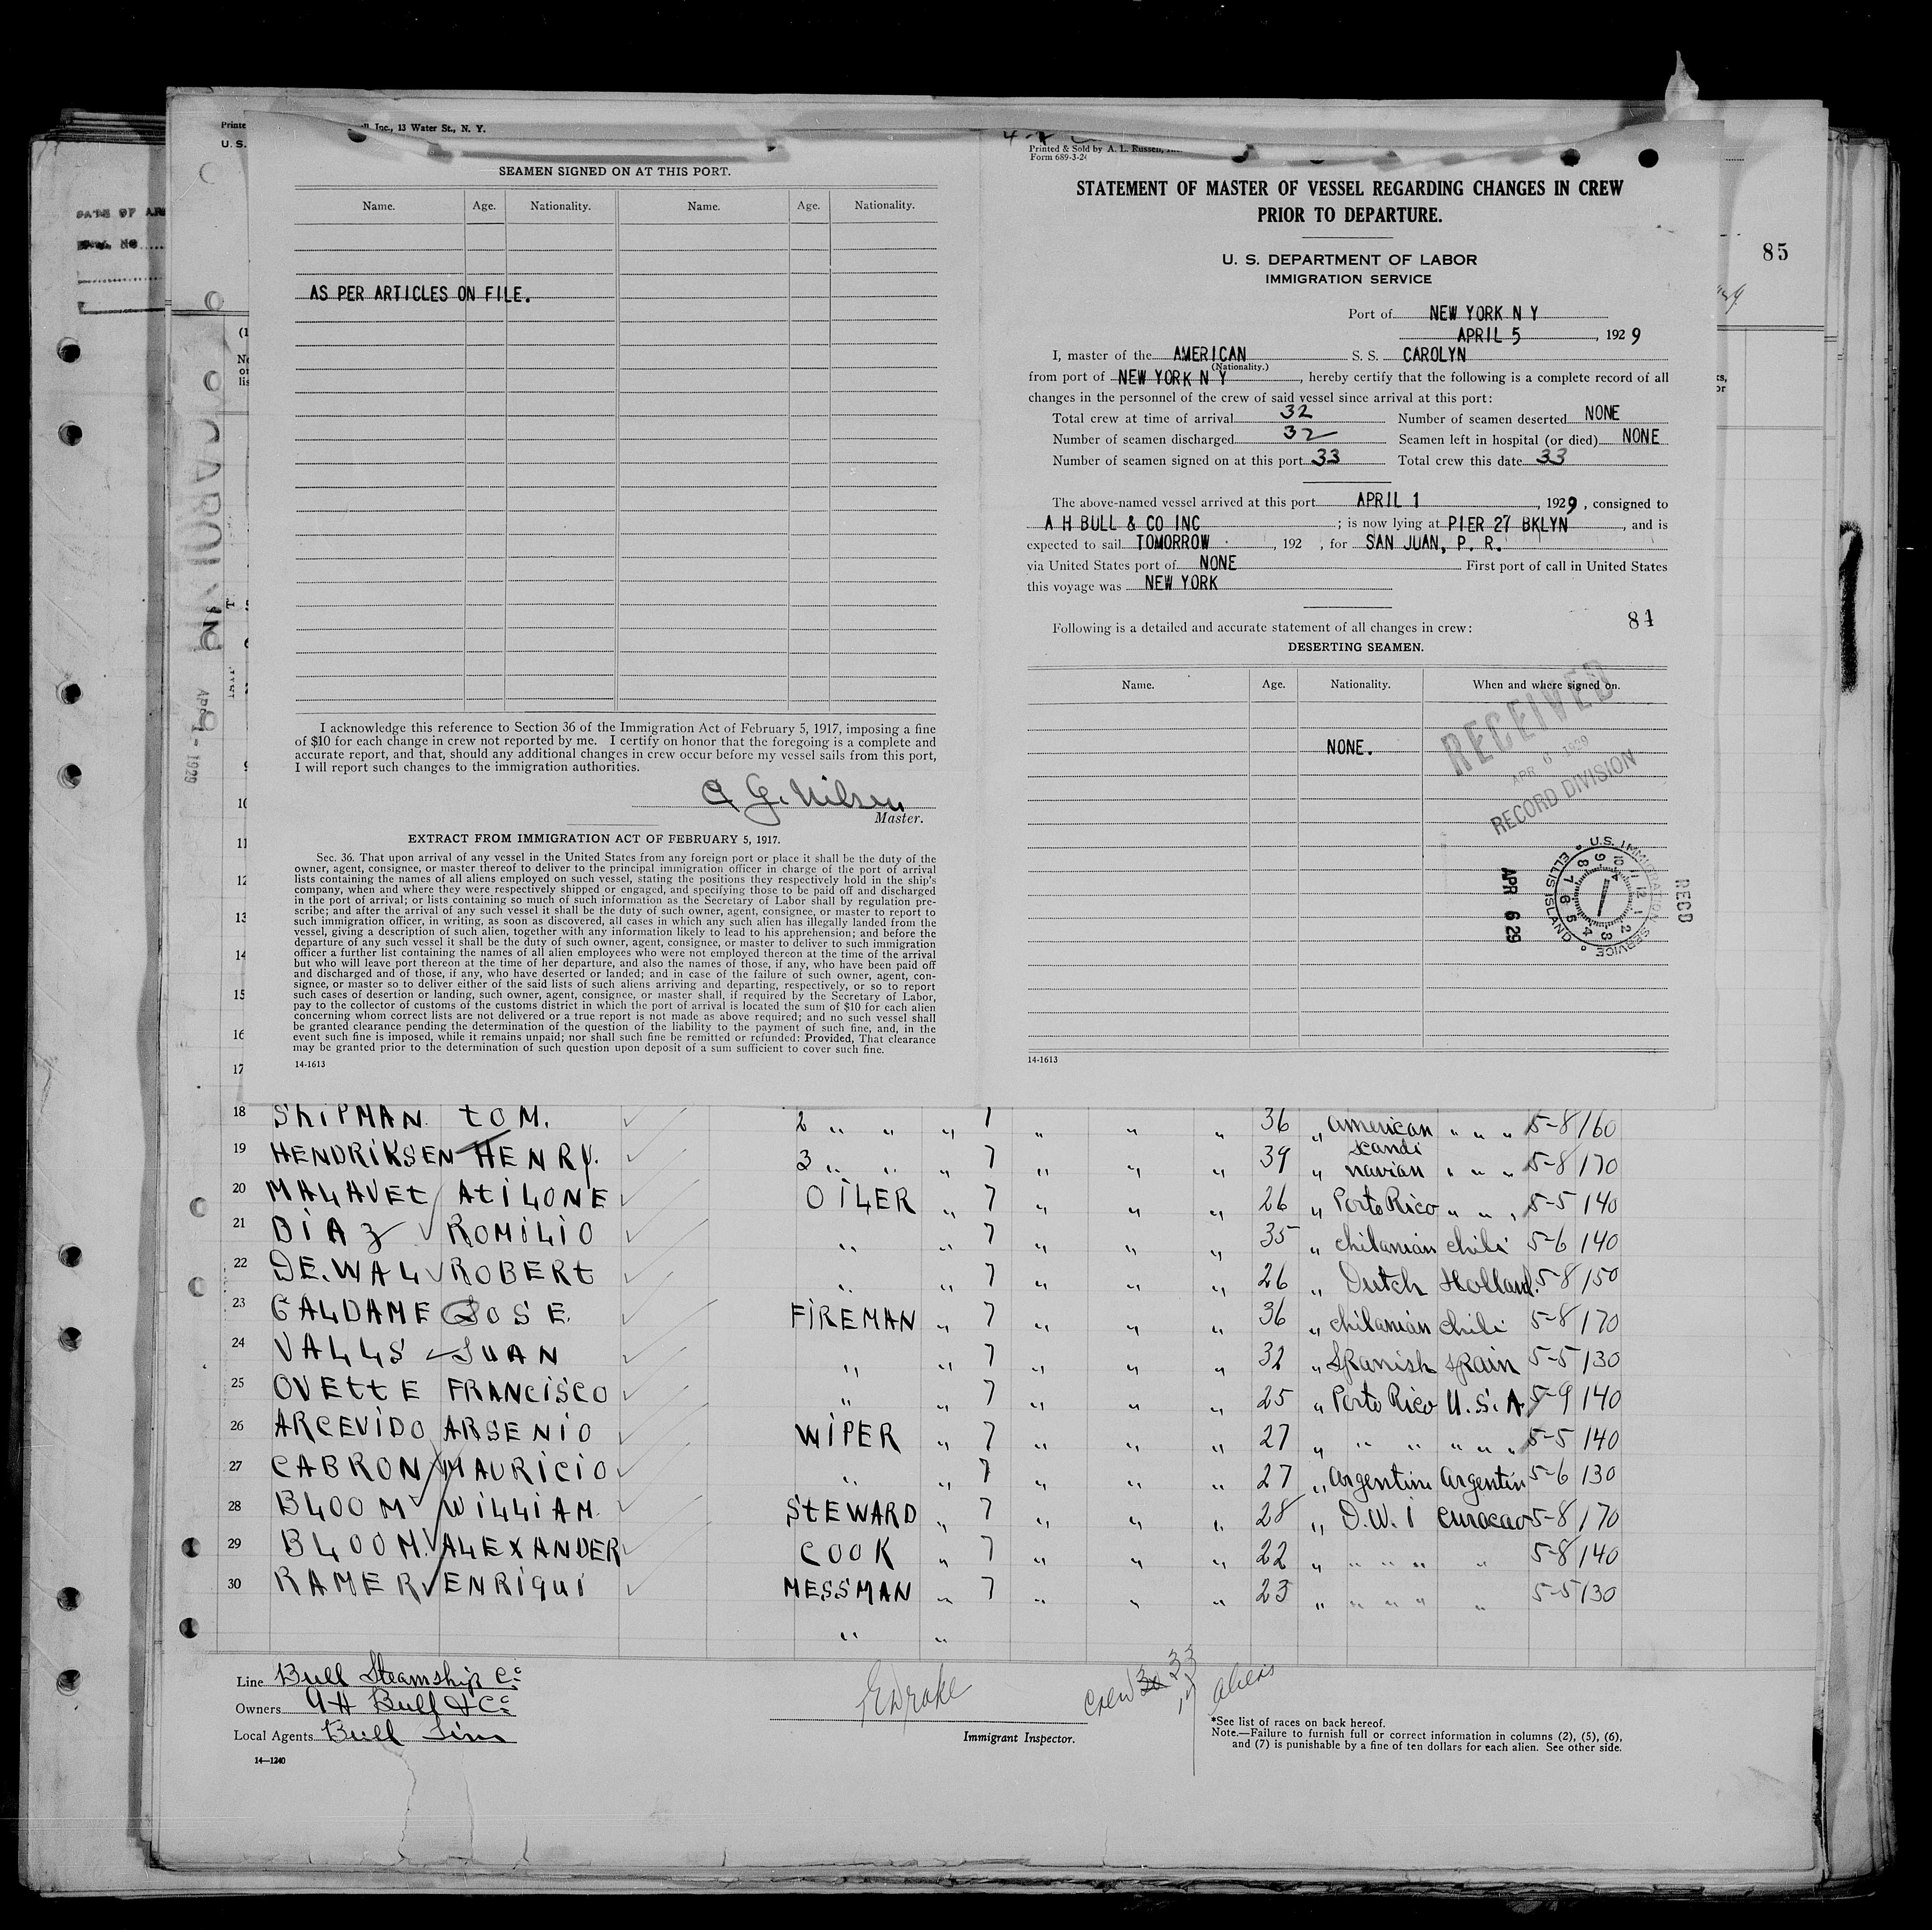 Inc., 13 Water St., N. Y.
U. S.
SEAMEN SIGNED ON AT THIS PORT.
Name. Age. Nationality. Name. Age. Nationality.
AS PER ARTICLES ON FILE.
I acknowledge this reference to Section 36 of the Immigration Act of February 5, 1917, imposing a fine
of $10 for each change in crew not reported by me. I certify on honor that the foregoing is a complete and
accurate report, and that, should any additional changes in crew occur before my vessel sails from this port,
I will report such changes to the immigration authorities.
G. Nilsen
Master.
EXTRACT FROM IMMIGRATION ACT OF FEBRUARY 5, 1917.
Sec. 36. That upon arrival of any vessel in the United States from any foreign port or place it shall be the duty of the
owner, agent, consignee, or master thereof to deliver to the principal immigration officer in charge of the port of arrival
lists containing the names of all aliens employed on such vessel, stating the positions they respectively hold in the ship's
company, when and where they were respectively shipped or engaged, and specifying those to be paid off and discharged
in the port of arrival; or lists containing so much of such information as the Secretary of Labor shall by regulation pre-
scribe; and after the arrival of any such vessel it shall be the duty of such owner, agent, consignee, or master to report to
such immigration officer, in writing, as soon as discovered, all cases in which any such alien has illegally landed from the
vessel, giving a description of such alien, together with any information likely to lead to his apprehension; and before the
departure of any such vessel it shall be the duty of such owner, agent, consignee, or master to deliver to such immigration
officer a further list containing the names of all alien employees who were not employed thereon at the time of the arrival
but who will leave port thereon at the time of her departure, and also the names of those, if any, who have been paid off
and discharged and of those, if any, who have deserted or landed; and in case of the failure of such owner, agent, con-
signee, or master so to deliver either of the said lists of such aliens arriving and departing, respectively, or so to report
such cases of desertion or landing, such owner, agent, consignee, or master shall, if required by the Secretary of Labor,
pay to the collector of customs of the customs district in which the port of arrival is located the sum of $10 for each alien
concerning whom correct lists are not delivered or a true report is not made as above required; and no such vessel shall
be granted clearance pending the determination of the question of the liability to the payment of such fine, and, in the
event such fine is imposed, while it remains unpaid; nor shall such fine be remitted or refunded: Provided, That clearance
may be granted prior to the determination of such question upon deposit of a sum sufficient to cover such fine.
14-1613
Printed & Sold by A. L. Russell,
Form 689-3-24
STATEMENT OF MASTER OF VESSEL REGARDING CHANGES IN CREW
PRIOR TO DEPARTURE.
U. S. DEPARTMENT OF LABOR
IMMIGRATION SERVICE
Port of NEW YORK N Y
APRIL 5, 1929
I, master of the AMERICAN S. S. CAROLYN
(Nationality.)
from port of NEW YORK N Y, hereby certify that the following is a complete record of all
changes in the personnel of the crew of said vessel since arrival at this port:
Total crew at time of arrival 32 Number of seamen deserted NONE
Number of seamen discharged 32 Seamen left in hospital (or died) NONE
Number of seamen signed on at this port 33 Total crew this date 33
The above-named vessel arrived at this port APRIL 1, 1929, consigned to
A H BULL & CO INC; is now lying at PIER 27 BKLYN, and is
expected to sail TOMORROW, 192 , for SAN JUAN, P. R.
via United States port of NONE First port of call in United States
this voyage was NEW YORK
84
Following is a detailed and accurate statement of all changes in crew:
DESERTING SEAMEN.
Name. Age. Nationality. When and where signed on.
NONE.
RECEIVED
APR 6 1929
RECORD DIVISION
U.S. IMMIGRATION SERVICE
ELLIS ISLAND
APR 6 29
RECD
14-1613
85
CAROLYN
APR 1 - 1929
10
11
12
13
14
15
16
17
18 SHIPMAN. TOM. 2 " " " 7 " " " 36 " American " " " 5-8 160
19 HENDRIKSEN HENRY. 3 " " " 7 " " " 39 " Scandinavian " " " 5-8 170
20 MALAVET ATILONE OILER " 7 " " " 26 " Porto Rico " " " 5-5 140
21 DIAZ ROMILIO " " 7 " " " 35 " Chilanian Chili 5-6 140
22 DE.WAL ROBERT " " 7 " " " 26 " Dutch Holland. 5-8 150
23 GALDAME JOSE. FIREMAN " 7 " " " 36 " Chilanian Chili 5-8 170
24 VALLS JUAN " " 7 " " " 32 " Spanish Spain 5-5 130
25 OVETTE FRANCISCO " " 7 " " " 25 " Porto Rico U.S.A 5-9 140
26 ARCEVIDO ARSENIO WIPER " 7 " " " 27 " " " " " " 5-5 140
27 CABRON MAURICIO " " 7 " " " 27 " Argentin Argentin 5-6 130
28 BLOOM WILLIAM. STEWARD " 7 " " " 28 " D.W.I Curacao 5-8 170
29 BLOOM. ALEXANDER COOK " 7 " " " 22 " " " " " 5-8 140
30 RAMER ENRIQUI MESSMAN " 7 " " " 23 " " " " " 5-5 130
" "
Line Bull Steamship Co
Owners A H Bull & Co
Local Agents Bull Lin
14—1240
E Drake
Immigrant Inspector.
Crew 30 33
17 aliens
*See list of races on back hereof.
Note.—Failure to furnish full or correct information in columns (2), (5), (6),
and (7) is punishable by a fine of ten dollars for each alien. See other side.